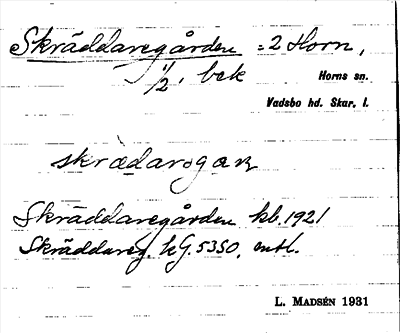 Skräddaregården = 2 Horn,
1/2, bek
Horns sn.
Vadsbo hd. Skar. l.
skrædarogaṛ
Skräddaregården kb. 1921
Skräddareg. kG. 5350, entl.
L. MADSÉN 1931